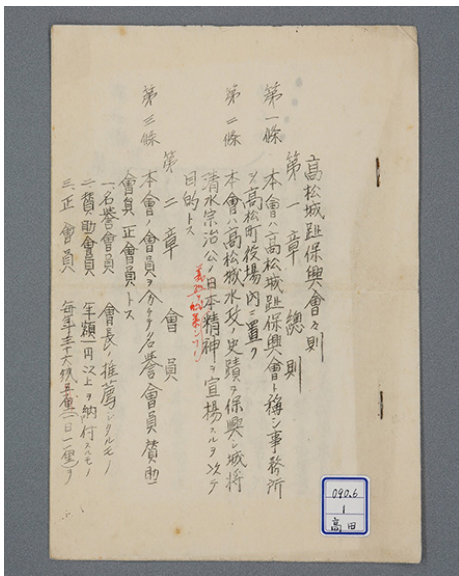 高松城趾保興會々則
第一章 總則
第一條 本會ハ高松城趾保興會ト稱シ事務所
ヲ高松町役場内ニ置ク
第二條 本會ハ高松城水攻ノ史蹟ヲ保興シ城將
清水宗治公ノ日本精神ヲ宣揚スルヲ以テ
目的トス
第二章 會員
第三條 本會ノ會員ヲ分チテ名譽會員賛助
會員正會員トス
一、名譽會員 會長ノ推薦シタルモノ
二、賛助會員 年額一円以上ヲ納付スルモノ
三、正會員 毎年三十六銭五厘(一日一厘)ヲ
090.6
1
高田